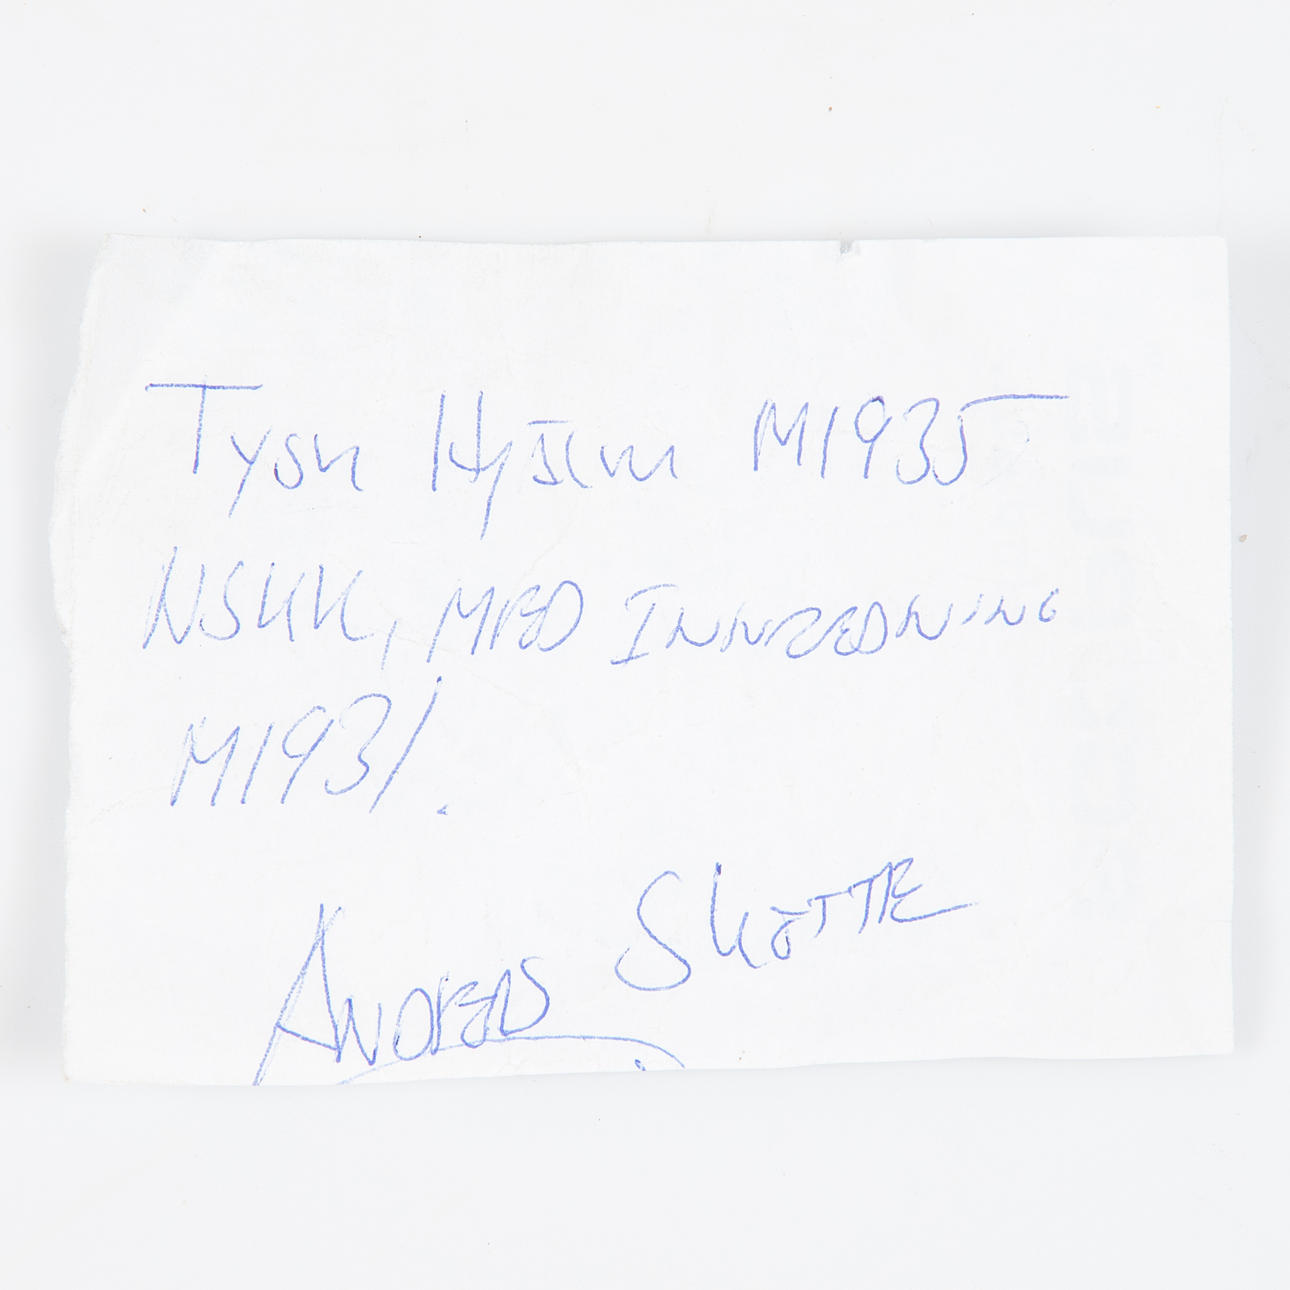 Tysk Hjälm M1935
NSKK, MED INNREDNING
M1931.
ANDERS SKÖTTE